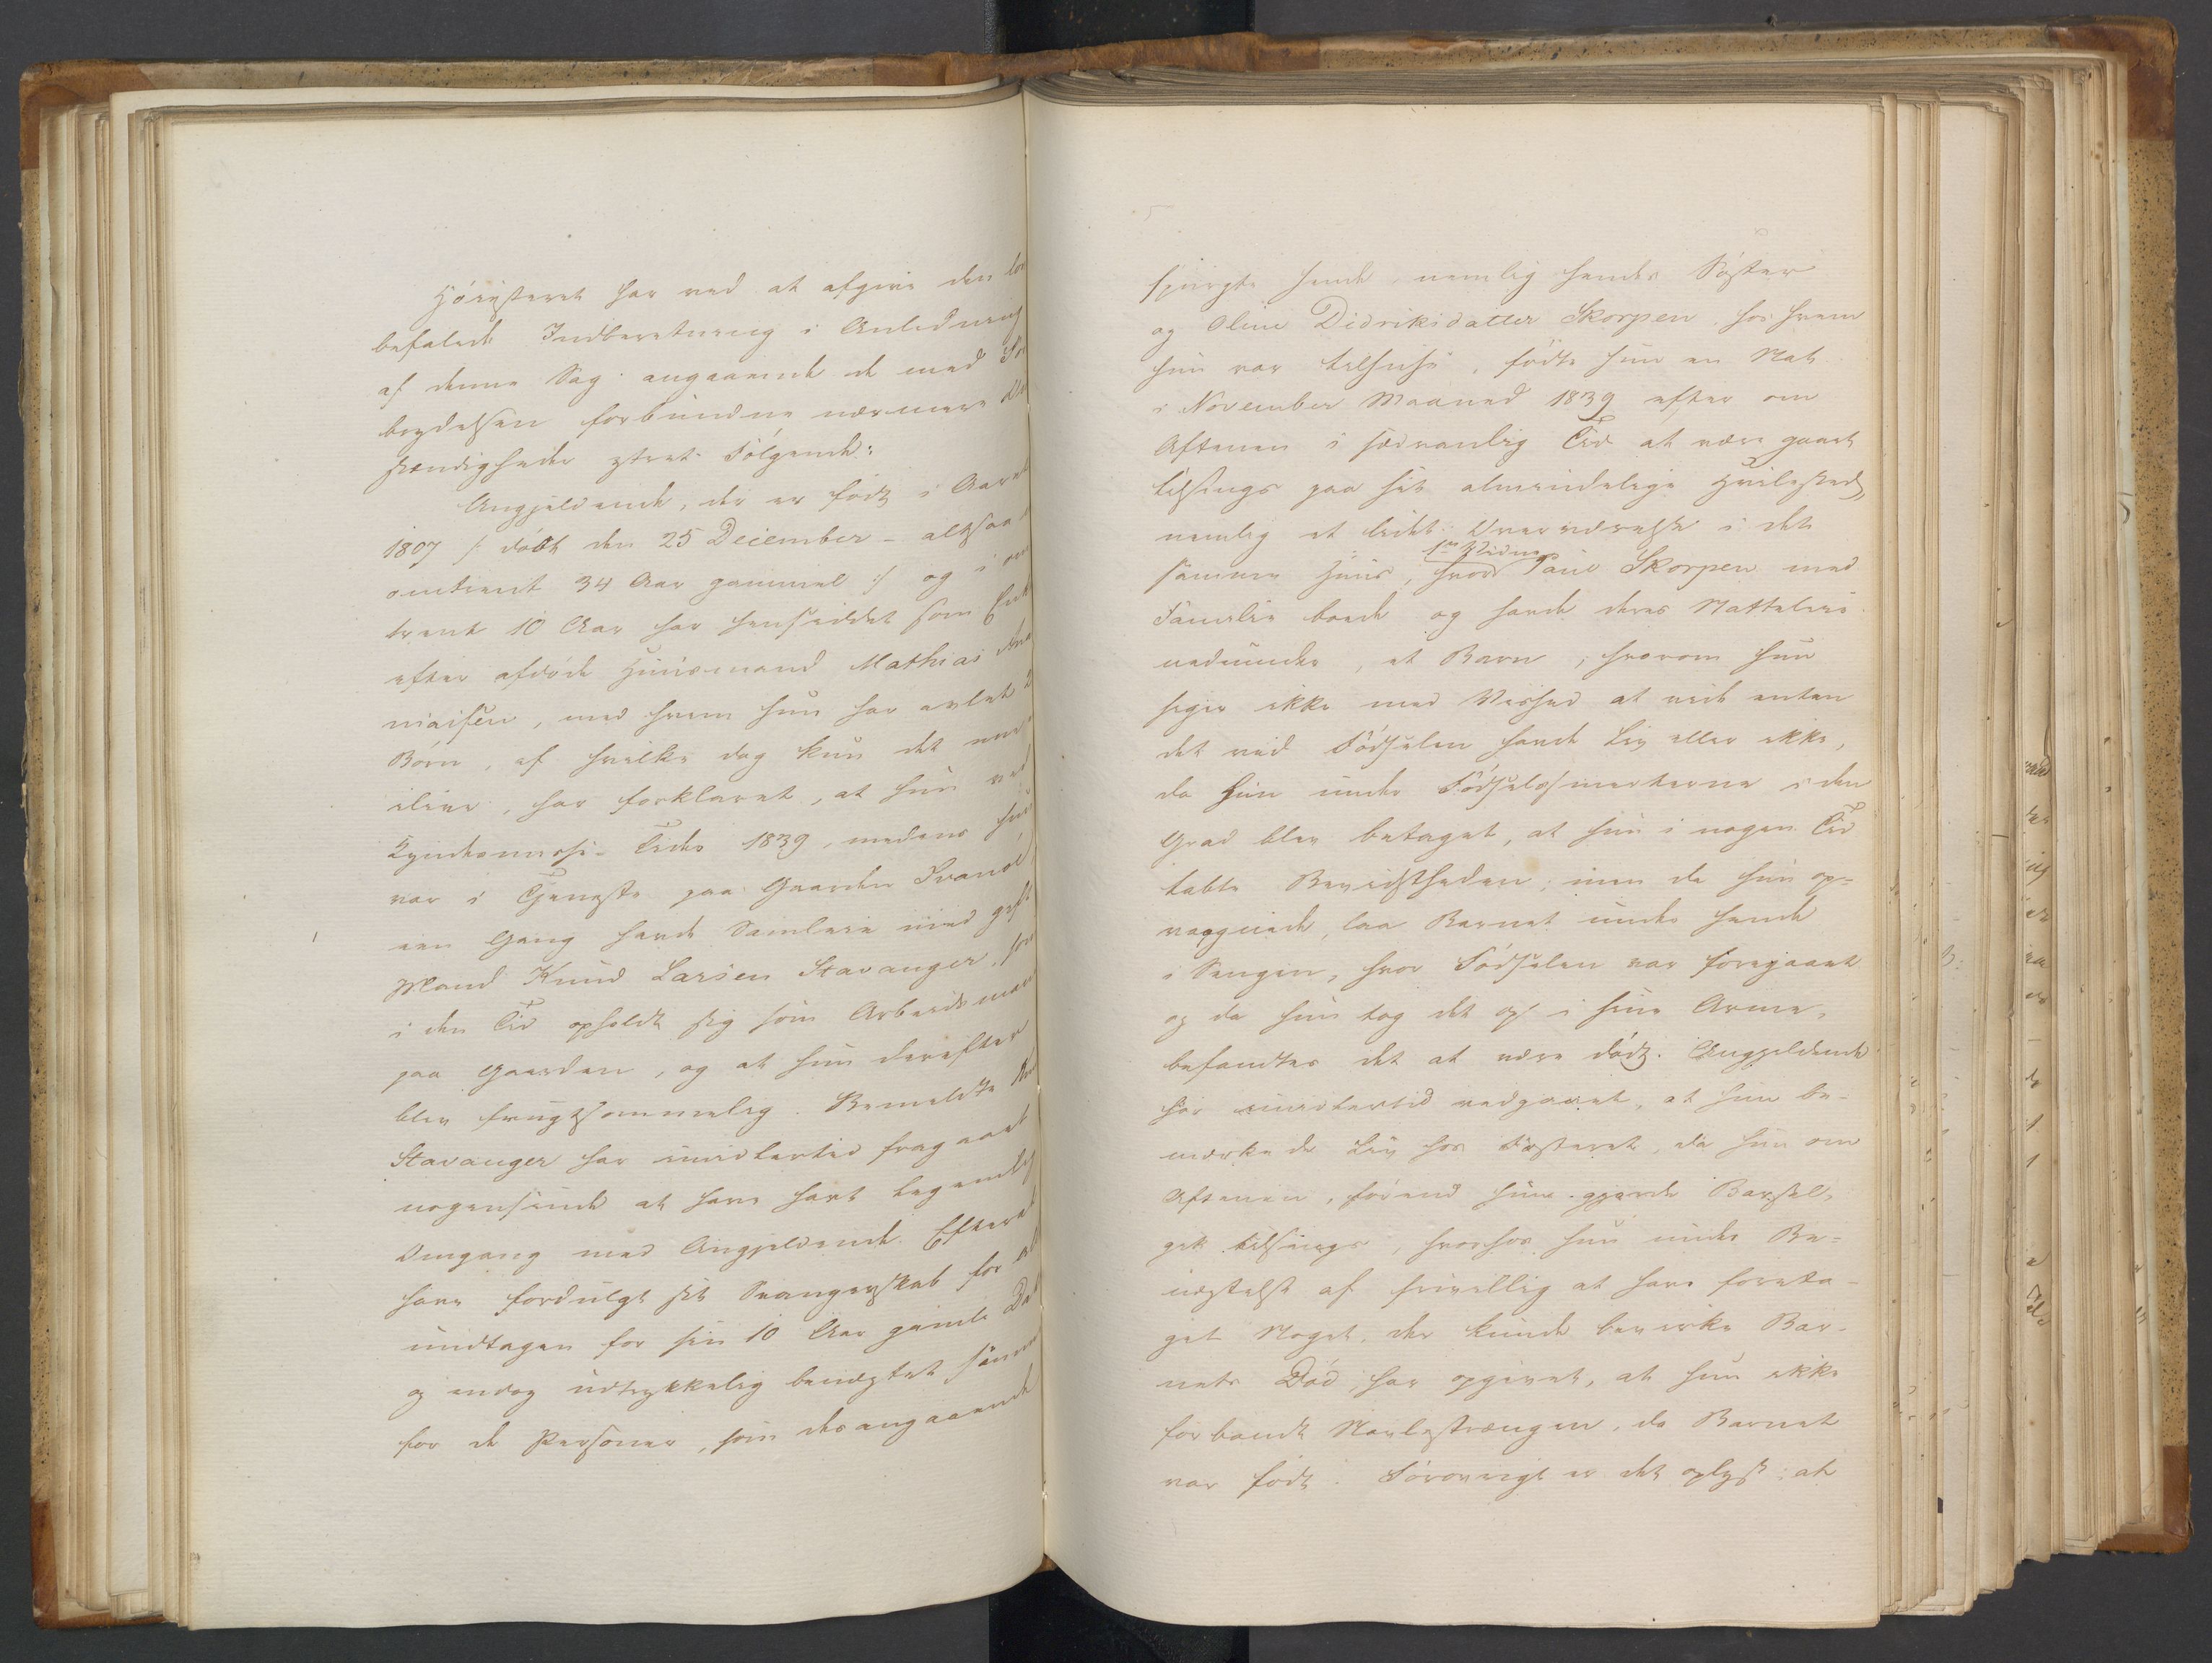 Höiesteret har ved at afgive den lov
befalede Indberetning i Anledning
af denne Sag angaaende de med For
brydelsen forbundne nærmere Om
stændigheder yttret Følgende:
Angjeldende, der er født i Aaret
1807 /: døbt den 25 December – altsaa
omtrent 34 Aar gammel :/ og i om
trent 10 Aar har hensiddet som Enke
efter afdøde Huusmand Mathias
niassen, med hvem hun har avlet 2
Børn, af hvilke dog kun det ene er
ilive, har forklaret, at hun ved
Kyndelsmisse-Tider 1839, medens hun
var i Tjeneste paa Gaarden Svanöe
een Gang havde Samleie med gift
Mand Knud Larsen Stavanger, som
i den Tid opholdt sig som Arbeidsmand
paa Gaarden, og at hun derefter
blev frugtsommelig. Bemeldte Knud
Stavanger har imidlertid fragaaet
nogensinde at have havt legemlig
Omgang med Angjeldende. Efterat
have fordulgt sit Svangerskab for alle
undtagen for sin 10 Aar gamle Dat
og endog udtrykkelig benægtet samme
for de Personer, som desangaaende
spurgte hende, nemlig hendes Søster
og Oline Didriksdatter Skorpen, hos hvem
hun var tilhuse, fødte hun en Nat
i November Maaned 1839 efter om
Aftenen i sædvanlig Tid at være gaaet
tilsengs paa sit almindelige Hvilested,
nemlig et lidet Overværelse i det
samme Huus, hvor 1ste Vidne Paul Skorpen med
Familie boede og havde deres Natteleie
nedunder, et Barn, hvorom hun
siger ikke med Vished at vide enten
det ved Fødselen havde Liv eller ikke,
da hun under Fødselssmerterne i den
Grad blev betaget, at hun i nogen Tid
tabte Bevidstheden; men da hun op-
vaagnede, laa Barnet under hende
i Sengen, hvor Fødselen var foregaaet
og da hun tog det op i sine Arme,
befandtes det at være dødt. Angjeldende
har imidlertid vedgaaet, at hun be-
mærkede Liv hos Fosteret, da hun om
Aftenen, førend hun gjorde Barsel,
gik tilsengs, hvorhos hun under Be-
nægtelse af frivillig at have foreta-
get Noget, der kunde bevirke Bar-
nets Død, har opgivet, at hun ikke
forbandt Navlestrængen, da Barnet
var født. Forøvrigt er det oplyst: at